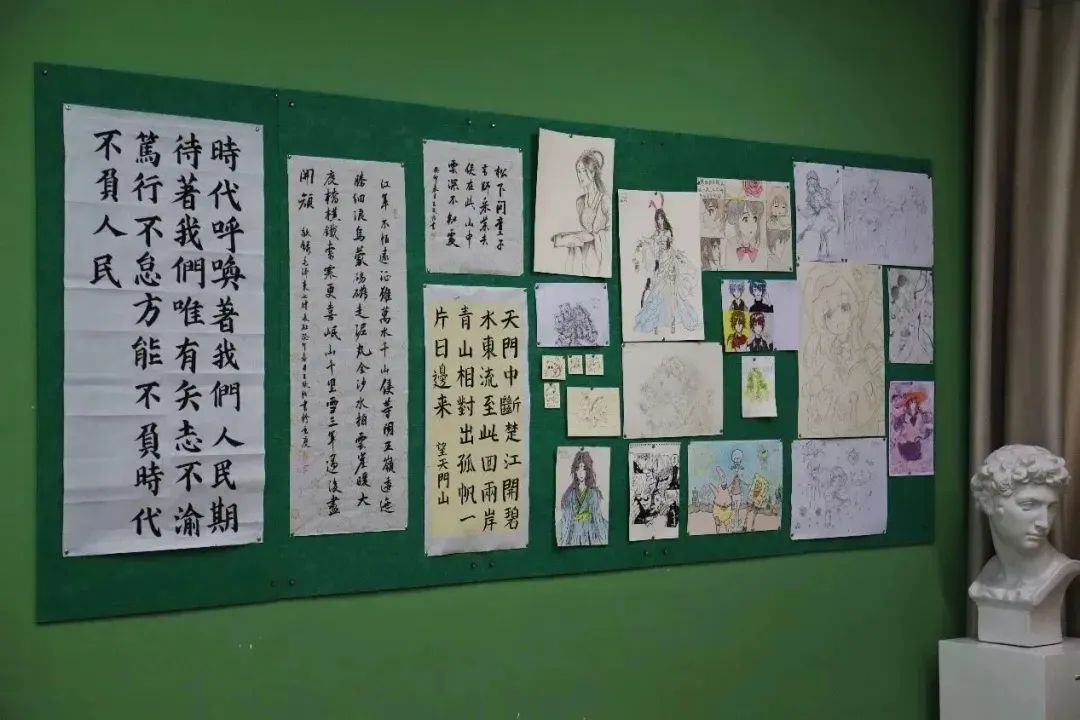 時代呼喚著我們人民期
待著我們唯有矢志不渝
篤行不怠方能不負時代
不負人民
紅軍不怕遠征難萬水千山只等閑五嶺逶迤
騰細浪烏蒙磅礴走泥丸金沙水拍雲崖暖大
渡橋橫鐵索寒更喜岷山千里雪三軍過後盡
開顏
松下问童子
言師采藥去
只在此山中
雲深不知處
天門中斷楚江開碧
水東流至此回兩岸
青山相對出孤帆一
片日邊来
望天門山